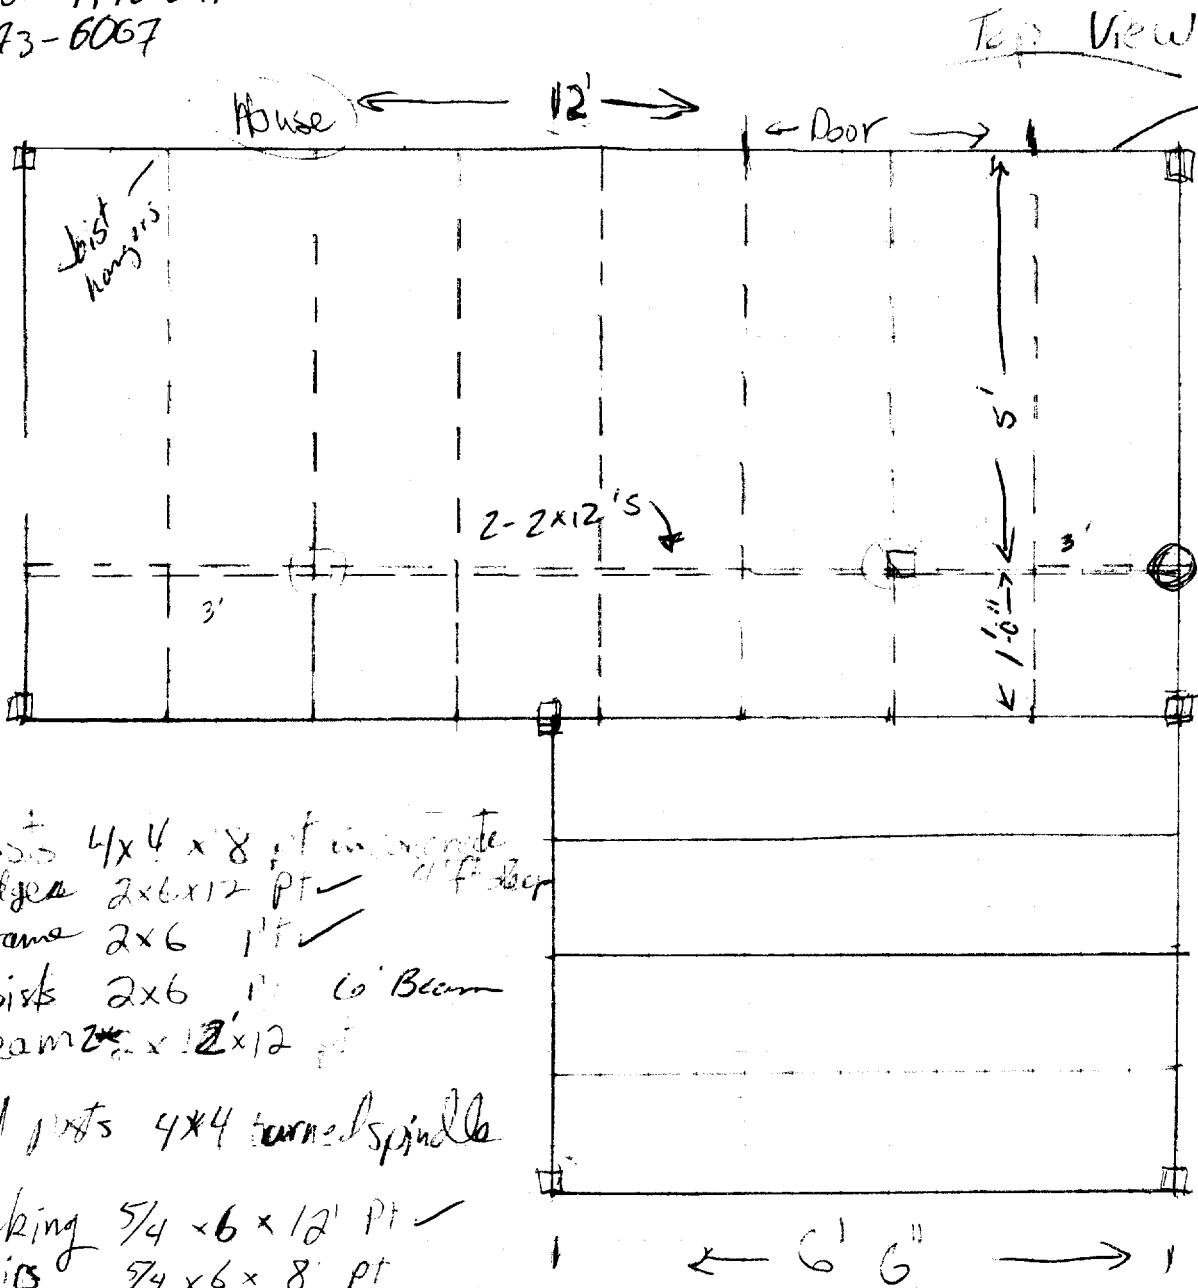 73-6067
Top View
House
12'
Door
Joist
hangers
5'
2-2x12's
3'
3'
1'0"
4x4 x 8 pt in concrete
4 ft deep
2x6x12 Pt ✓
2x6 Pt ✓
2x6 6' Beam
x 12
posts 4x4 turned spindle
5/4 x 6 x 12' Pt ✓
5/4 x 6 x 8' pt
6' 6"